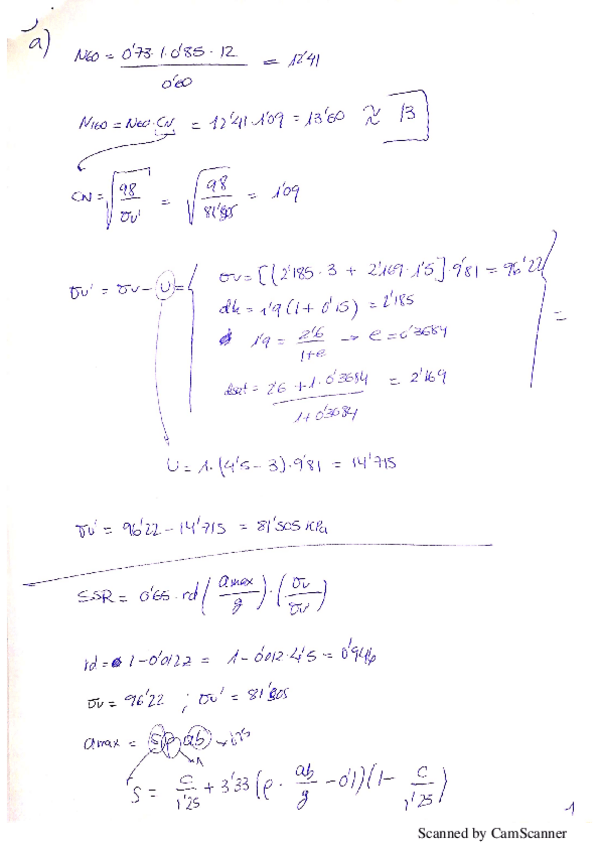 a)
N60 = 0'73·1·0'85·12 / 0'60 = 12'41
N160 = N60·CN = 12'41·1'09 = 13'60 ≈ 13
CN = √(98/σv') = √(98/81'505) = 1'09
σv' = σv - U =
σv = [(2'185·3 + 2'169·1'5]·9'81 = 96'22
dh = 1'9(1+0'15) = 2'185
1'9 = 2'6/(1+e) → e = 0'3684
dsat = 2'6 + 1·0'3684 / 1+0'3684 = 2'169
=
U = 1·(4'5-3)·9'81 = 14'715
σv' = 96'22 - 14'715 = 81'505 KPa
SSR = 0'65·rd (amax/g)·(σv/σv')
rd = 1-0'012z = 1-0'012·4'5 = 0'946
σv = 96'22 ; σv' = 81'505
amax = S ρ ab
S = C/1'25 + 3'33(ρ·ab/g - 0'1)(1 - C/1'25)
1
Scanned by CamScanner